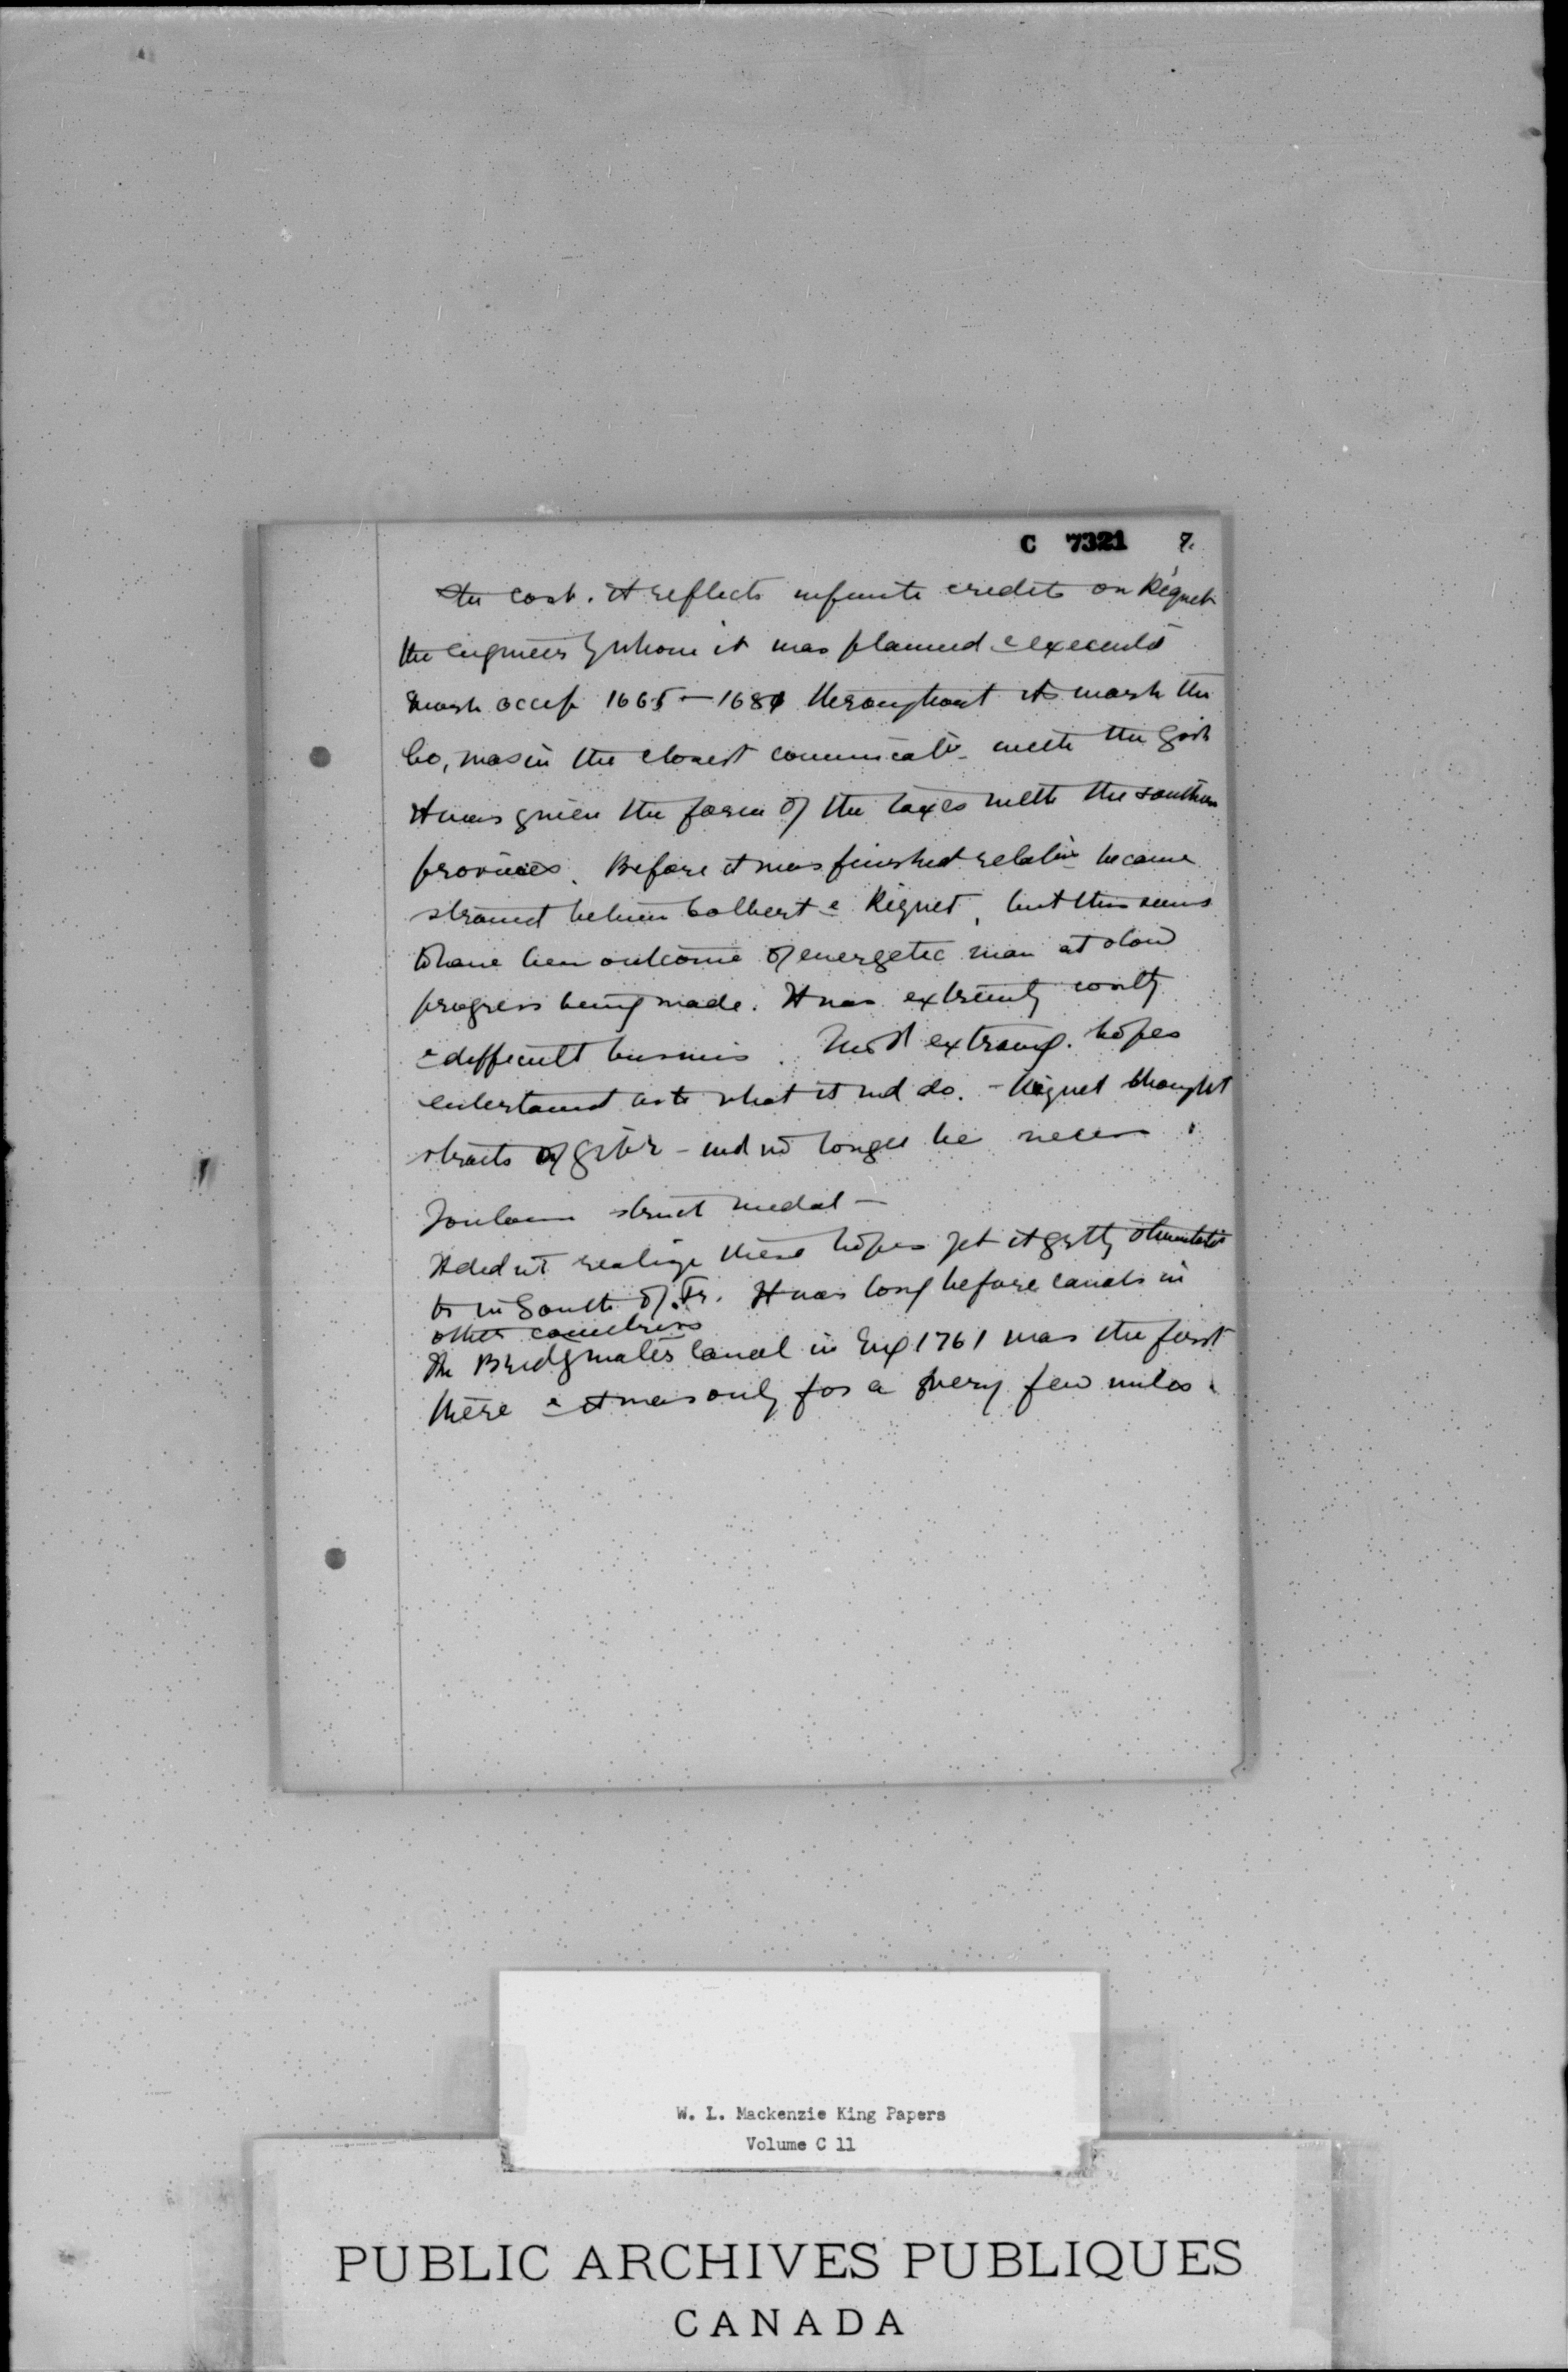 C 7321 7.
the cost. It reflects infinite credit on Riquet
the engineer by whom it was planned & executed
work occup 1665 – 1681 throughout its work the
Co, was in the closest communicatn with the Govt
It was given the farm of the taxes with the southern
provinces. Before it was finished relatins became
strained between Colbert & Riquet, but this seems
to have been outcome of energetic man at slow
progress being made. It was extremely costly
& difficult business. Most extravg. hopes
entertained as to what it wd do. – Riquet thought
straits of Gibr – wd no longer be necess.
Toulouse struck medal –
It did nt realize these hopes yet it grtly stimulated
tr in South of Fr. It was long before canals in
other countries
The Bridgwater Canal in Eng 1761 was the first
there & it was only for a very few miles.
W. L. Mackenzie King Papers
Volume C 11
PUBLIC ARCHIVES PUBLIQUES
CANADA